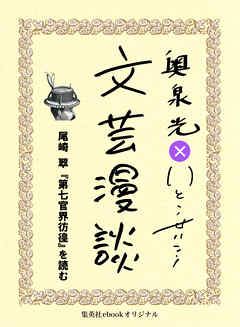 奥泉光×いとうせいこう
文芸漫談
尾崎 翠『第七官界彷徨』を読む
集英社ebookオリジナル